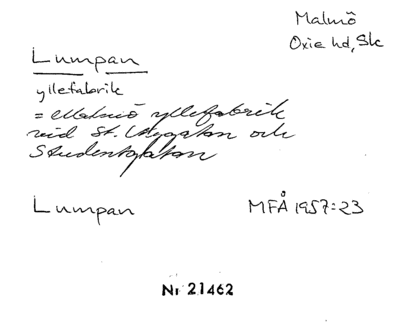 Malmö
Oxie hd, Sk
Lumpan
yllefabrik
= Malmö yllefabrik
vid St. Nygatan och
Studentgatan
Lumpan
MFÅ 1957:23
Nr 21462